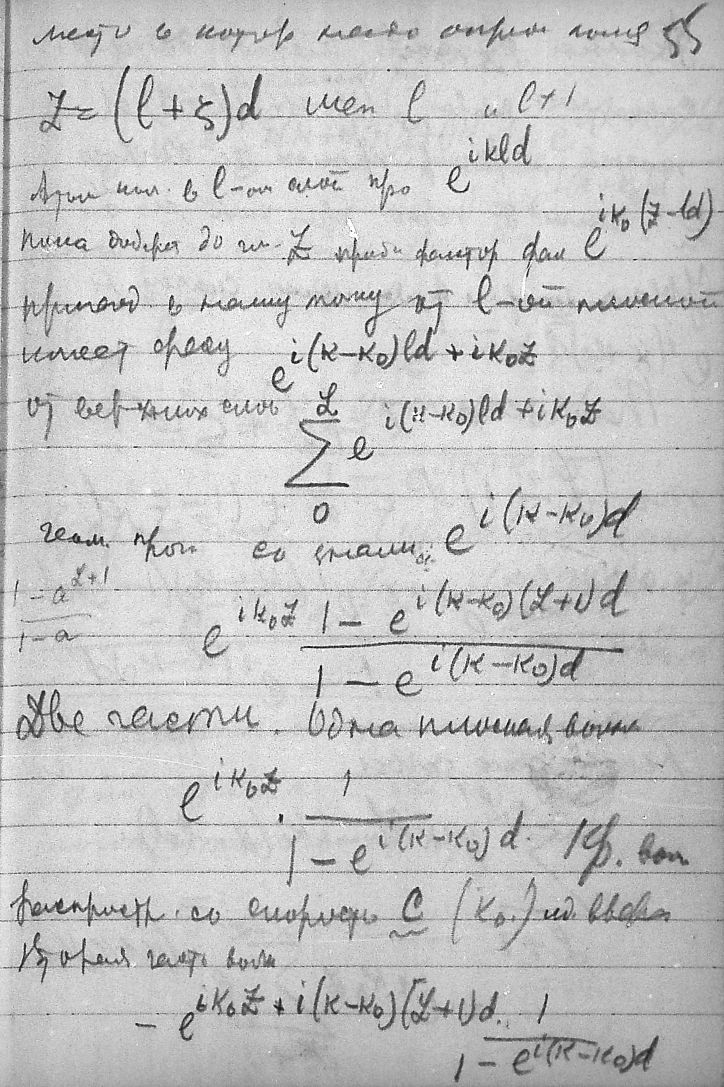 место в котор надо опред поля 55
Z = (l + ζ)d меж l и l+1
в l-ом слой про e^{ikld}
пока до Z фактор фаз e^{ik₀(Z-ld)}
приход в нашу точку от l-ой плоской
имеет фазу e^{i(k-k₀)ld + ik₀Z}
от верхних слоев \sum_{0}^{L} e^{i(k-k₀)ld + ik₀Z}
геом. прог со знамен e^{i(k-k₀)d}
\frac{1-a^{L+1}}{1-a} e^{ik₀Z} \frac{1 - e^{i(k-k₀)(L+1)d}}{1 - e^{i(k-k₀)d}}
Две части. Одна плоская волна
e^{ik₀Z} · \frac{1}{1 - e^{i(k-k₀)d}}
распростр. со скорость C (k₀)
Вторая часть волн
- e^{ik₀Z + i(k-k₀)(L+1)d} · \frac{1}{1 - e^{i(k-k₀)d}}